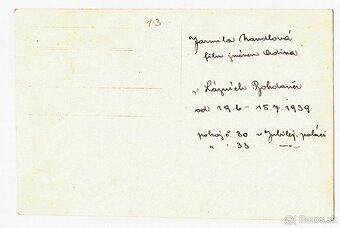 13
Jarmila Mandlová
film jménem Adina
v Lázních Bohdaneč
od 19.6 - 15.7. 1939
pokoj č. 30 v Jubilej. paláci
" " 33 —"—
bazos.sk